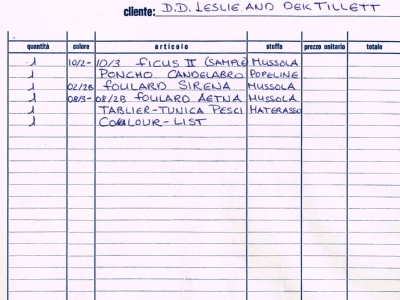 cliente: D.D. LESLIE AND DEK TILLETT
quantità colore articolo stoffa prezzo unitario totale
1 10/2- 10/3 FICUS II (SAMPLE) MUSSOLA
1 PONCHO CANDELABRO POPELINE
1 02/2B FOULARD SIRENA MUSSOLA
1 08/3- 08/2B FOULARD AETNA MUSSOLA
1 TABLIER-TUNICA PESCI MATERASSO
1 COLOUR-LIST